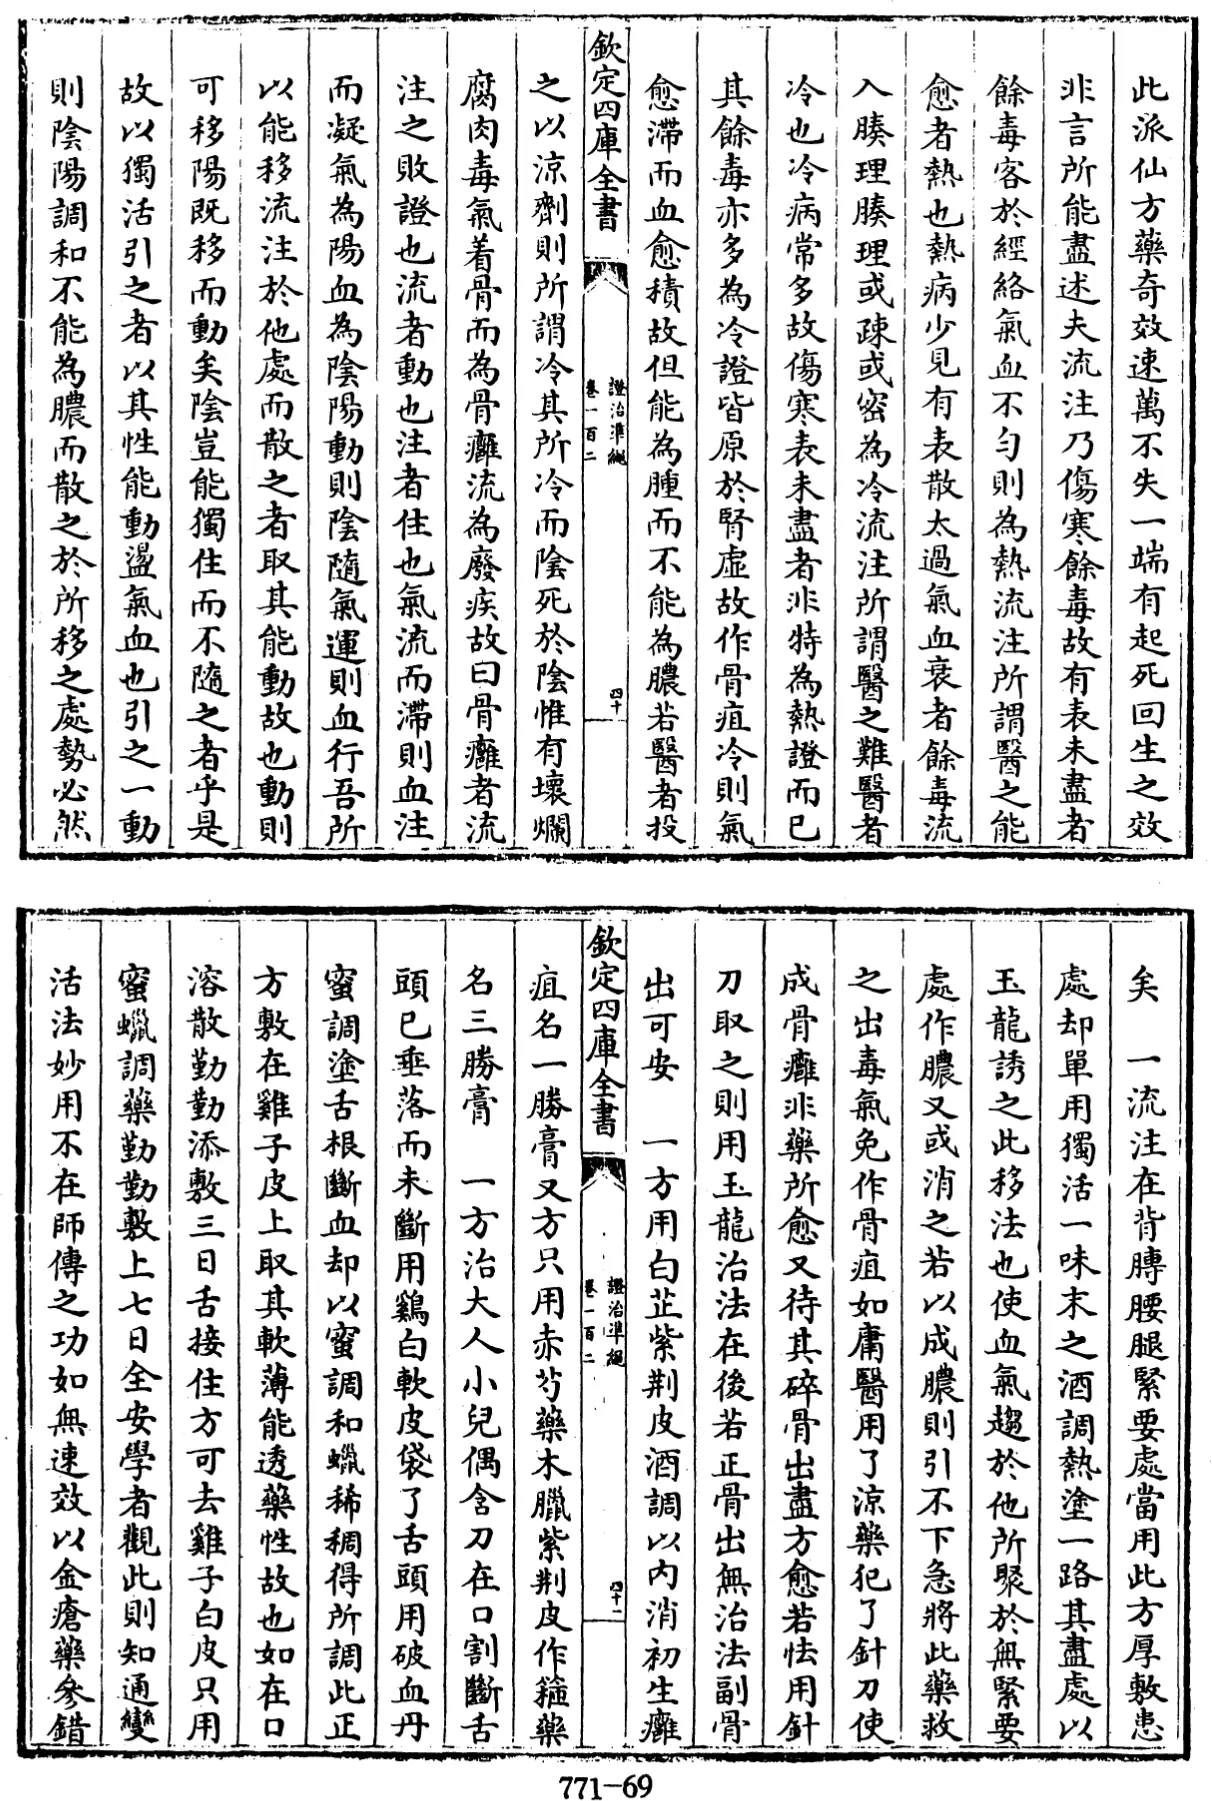 此派仙方藥奇效速萬不失一端有起死回生之效
非言所能盡述夫流注乃傷寒餘毒故有表未盡者
餘毒客於經絡氣血不勻則為熱流注所謂醫之能
愈者熱也熱病少見有表散太過氣血衰者餘毒流
入腠理腠理或疎或密為冷流注所謂醫之難醫者
冷也冷病常多故傷寒表未盡者非特為熱證而已
其餘毒亦多為冷證皆原於腎虛故作骨疽冷則氣
愈滯而血愈積故但能為腫而不能為膿若醫者投
欽定四庫全書
證治準繩
卷一百二
四十
之以涼劑則所謂冷其所冷而陰死於陰惟有壞爛
腐肉毒氣着骨而為骨癰流為廢疾故曰骨癰者流
注之敗證也流者動也注者住也氣流而滯則血注
而凝氣為陽血為陰陽動則陰隨氣運則血行吾所
以能移流注於他處而散之者取其能動故也動則
可移陽既移而動矣陰豈能獨住而不隨之者乎是
故以獨活引之者以其性能動盪氣血也引之一動
則陰陽調和不能為膿而散之於所移之處勢必然
矣　一流注在背膊腰腿緊要處當用此方厚敷患
處却單用獨活一味末之酒調熱塗一路其盡處以
玉龍誘之此移法也使血氣趨於他所聚於無緊要
處作膿又或消之若以成膿則引不下急將此藥救
之出毒氣免作骨疽如庸醫用了涼藥犯了針刀使
成骨癰非藥所愈又待其碎骨出盡方愈若怯用針
刀取之則用玉龍治法在後若正骨出無治法副骨
出可安　一方用白芷紫荆皮酒調以內消初生癰
欽定四庫全書
證治準繩
卷一百二
四十一
疽名一勝膏又方只用赤芍藥木臘紫荆皮作箍藥
名三勝膏　一方治大人小兒偶含刀在口割斷舌
頭已垂落而未斷用鷄白軟皮袋了舌頭用破血丹
蜜調塗舌根斷血却以蜜調和蠟稀稠得所調此正
方敷在雞子皮上取其軟薄能透藥性故也如在口
溶散勤勤添敷三日舌接住方可去雞子白皮只用
蜜蠟調藥勤勤敷上七日全安學者觀此則知通變
活法妙用不在師傳之功如無速效以金瘡藥參錯
771-69